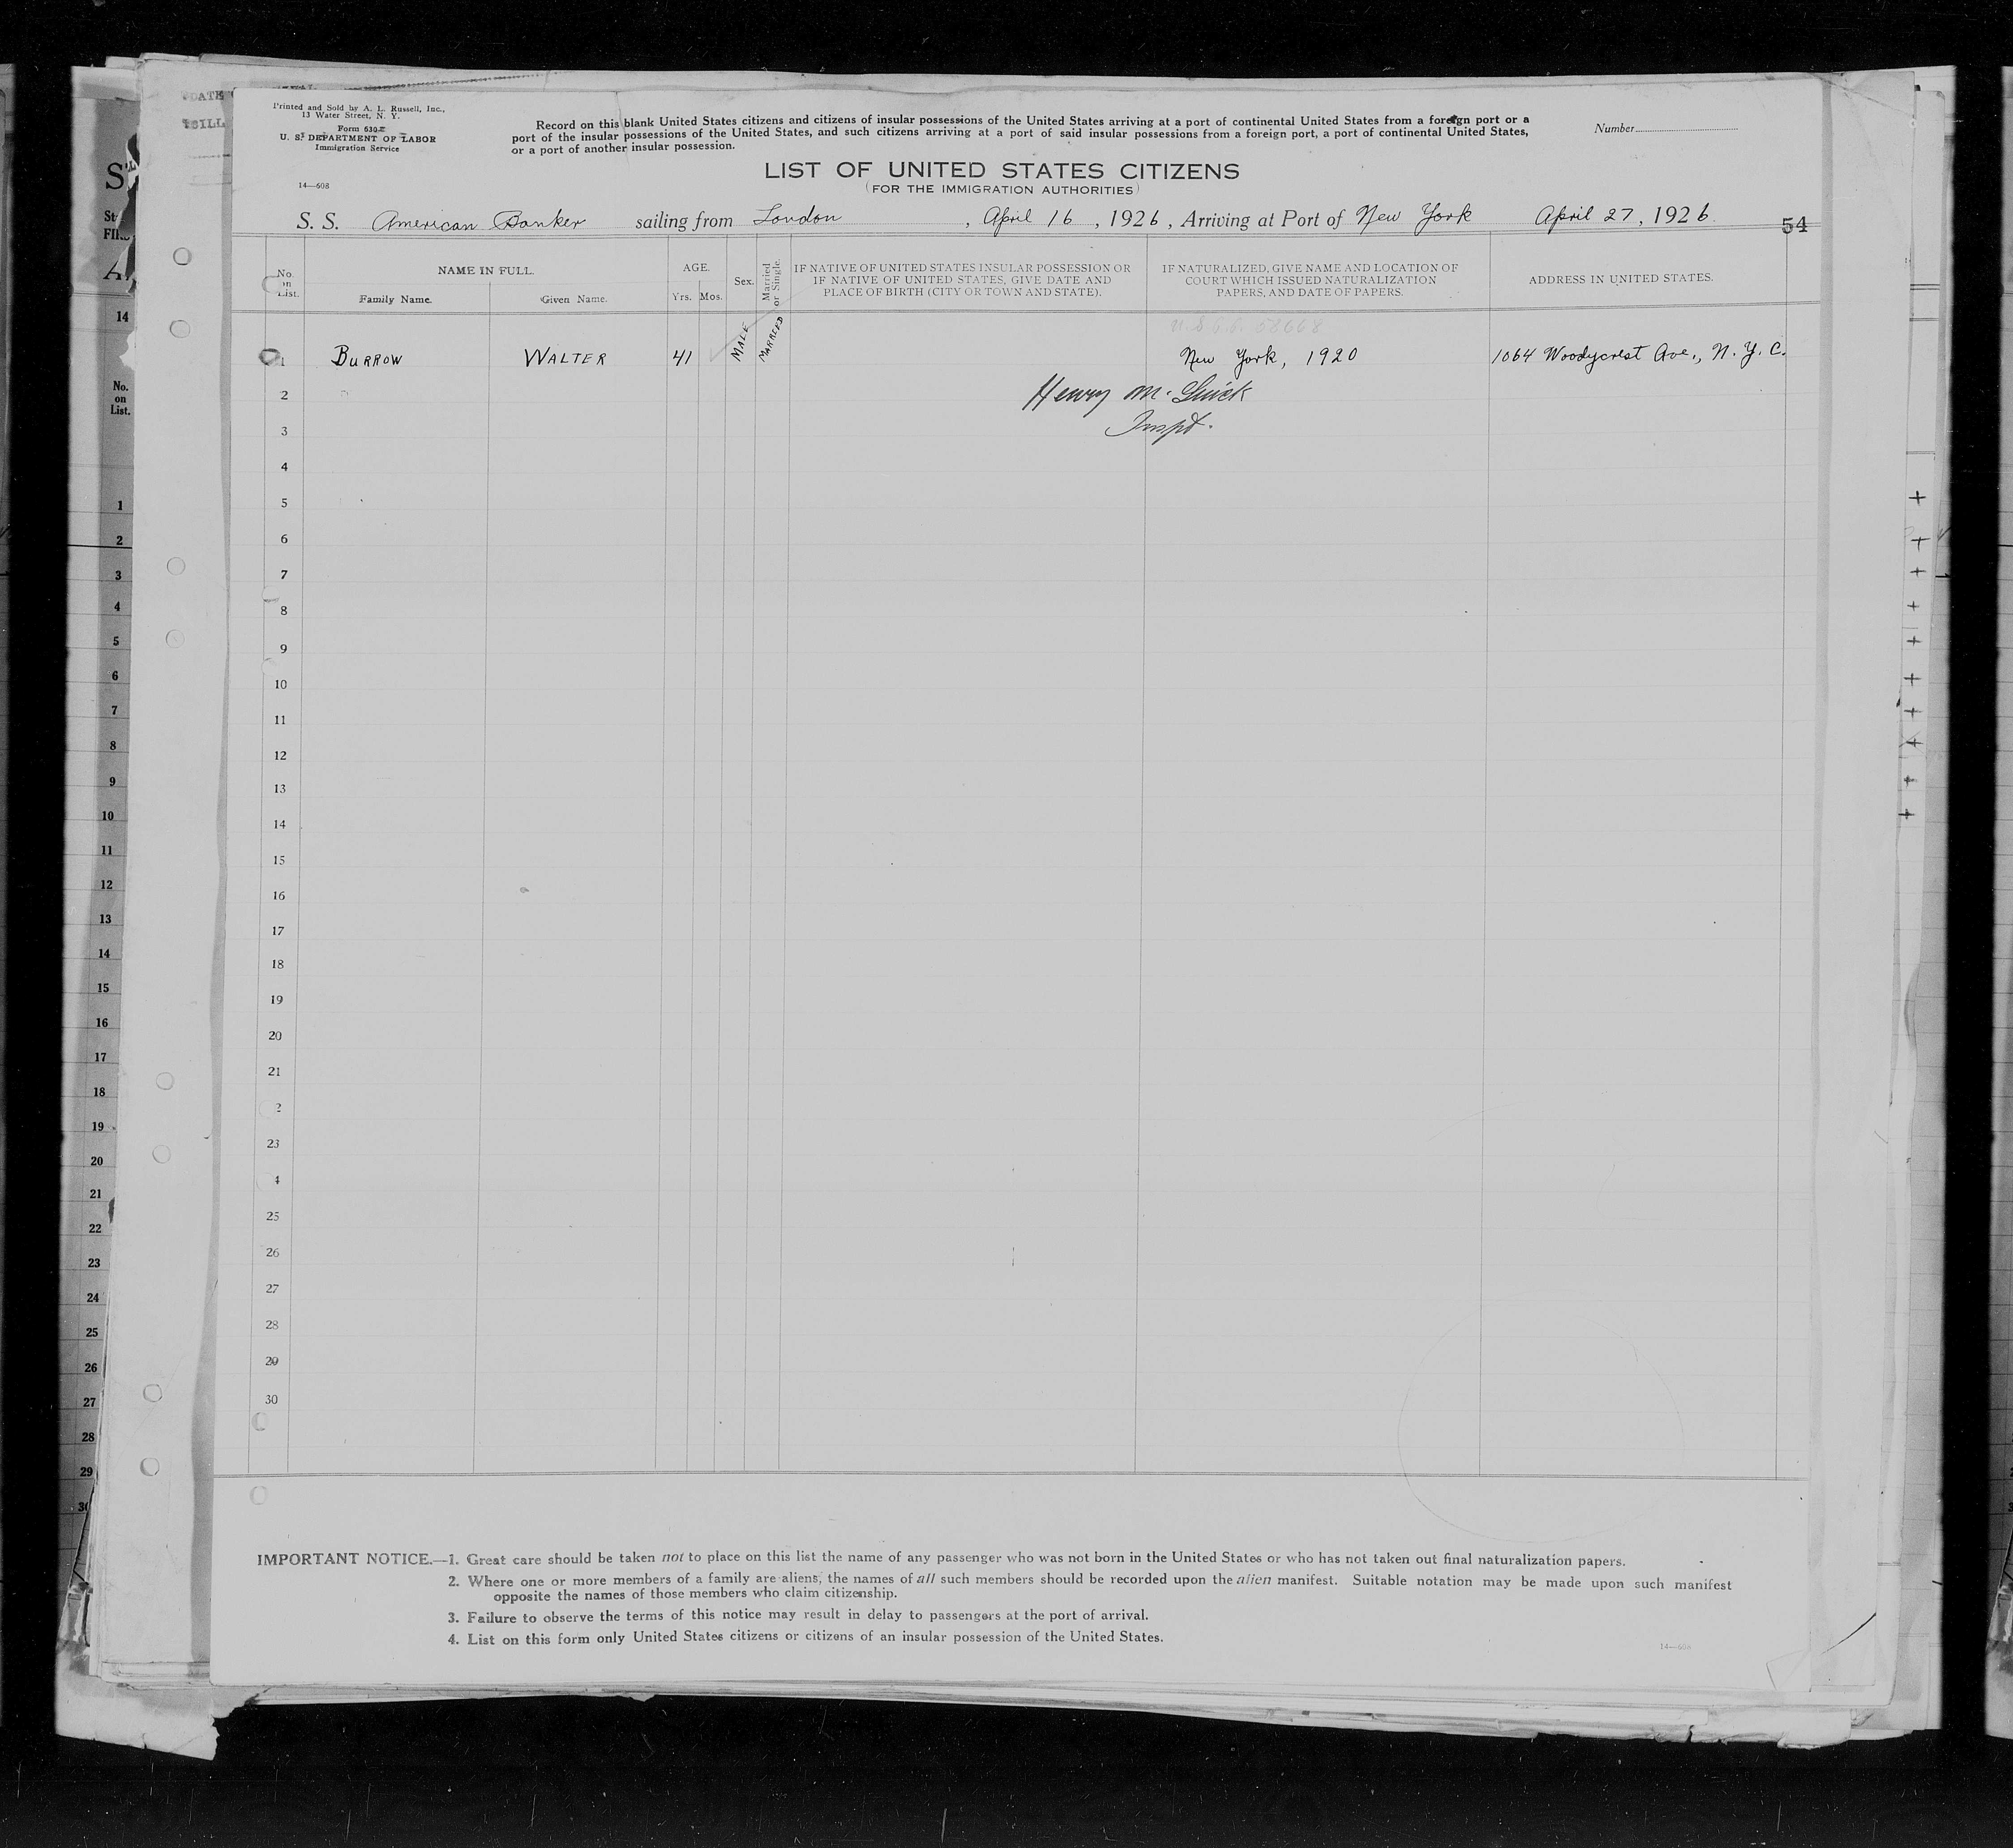 Printed and Sold by A. L. Russell, Inc.,
13 Water Street, N. Y.
Form 630
U. S. DEPARTMENT OF LABOR
Immigration Service
14—608
Record on this blank United States citizens and citizens of insular possessions of the United States arriving at a port of continental United States from a foreign port or a
port of the insular possessions of the United States, and such citizens arriving at a port of said insular possessions from a foreign port, a port of continental United States,
or a port of another insular possession.
Number
LIST OF UNITED STATES CITIZENS
(FOR THE IMMIGRATION AUTHORITIES)
S. S. American Banker sailing from London, April 16, 1926, Arriving at Port of New York April 27, 1926
54
No. on List.
NAME IN FULL.
Family Name.
Given Name.
AGE.
Yrs. Mos.
Sex.
Married or Single.
IF NATIVE OF UNITED STATES INSULAR POSSESSION OR
IF NATIVE OF UNITED STATES, GIVE DATE AND
PLACE OF BIRTH (CITY OR TOWN AND STATE).
IF NATURALIZED, GIVE NAME AND LOCATION OF
COURT WHICH ISSUED NATURALIZATION
PAPERS, AND DATE OF PAPERS.
ADDRESS IN UNITED STATES.
1 BURROW WALTER 41 MALE MARRIED New York, 1920 1064 Woodycrest Ave., N. Y. C.
2 Henry
3 Inspt.
4
5
6
7
8
9
10
11
12
13
14
15
16
17
18
19
20
21
2
23
4
25
26
27
28
29
30
IMPORTANT NOTICE.—1. Great care should be taken not to place on this list the name of any passenger who was not born in the United States or who has not taken out final naturalization papers.
2. Where one or more members of a family are aliens, the names of all such members should be recorded upon the alien manifest. Suitable notation may be made upon such manifest
opposite the names of those members who claim citizenship.
3. Failure to observe the terms of this notice may result in delay to passengers at the port of arrival.
4. List on this form only United States citizens or citizens of an insular possession of the United States.
14—608
14
No.
on
List.
1
2
3
4
5
6
7
8
9
10
11
12
13
14
15
16
17
18
19
20
21
22
23
24
25
26
27
28
29